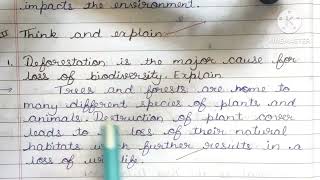 impacts the environment.
II Think and explain
1. Deforestation is the major cause for
loss of biodiversity. Explain
→ Trees and forests are home to
many different species of plants and
animals. Destruction of plant cover
leads to loss of their natural
habitats which further results in a
loss of life.